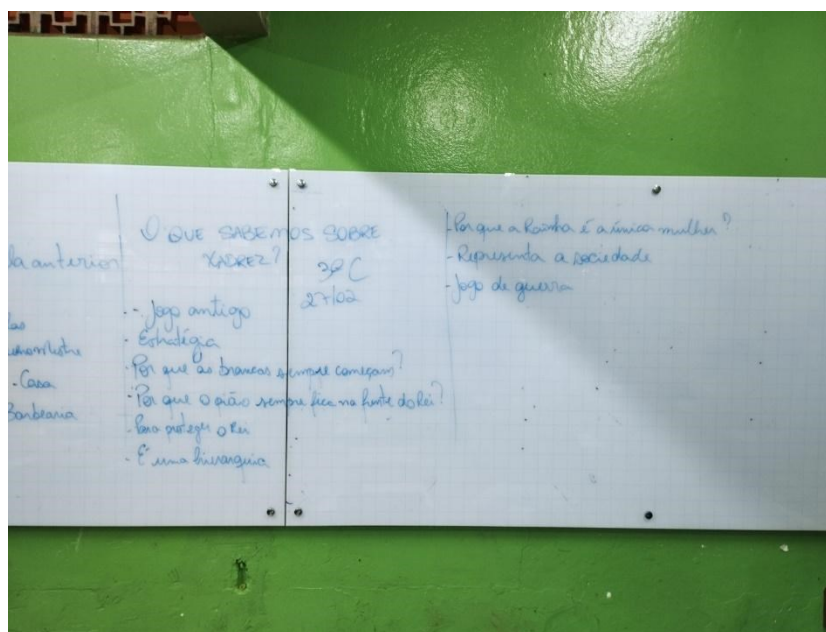 la anterior
- Casa
Barbearia
O QUE SABEMOS SOBRE
XADREZ?
3º C
27/02
- Jogo antigo
- Estratégia
- Por que as brancas sempre começam?
- Por que o pião sempre fica na frente do Rei?
- Para proteger o Rei
- É uma hierarquia
- Por que a Rainha é a única mulher?
- Representa a sociedade
- Jogo de guerra